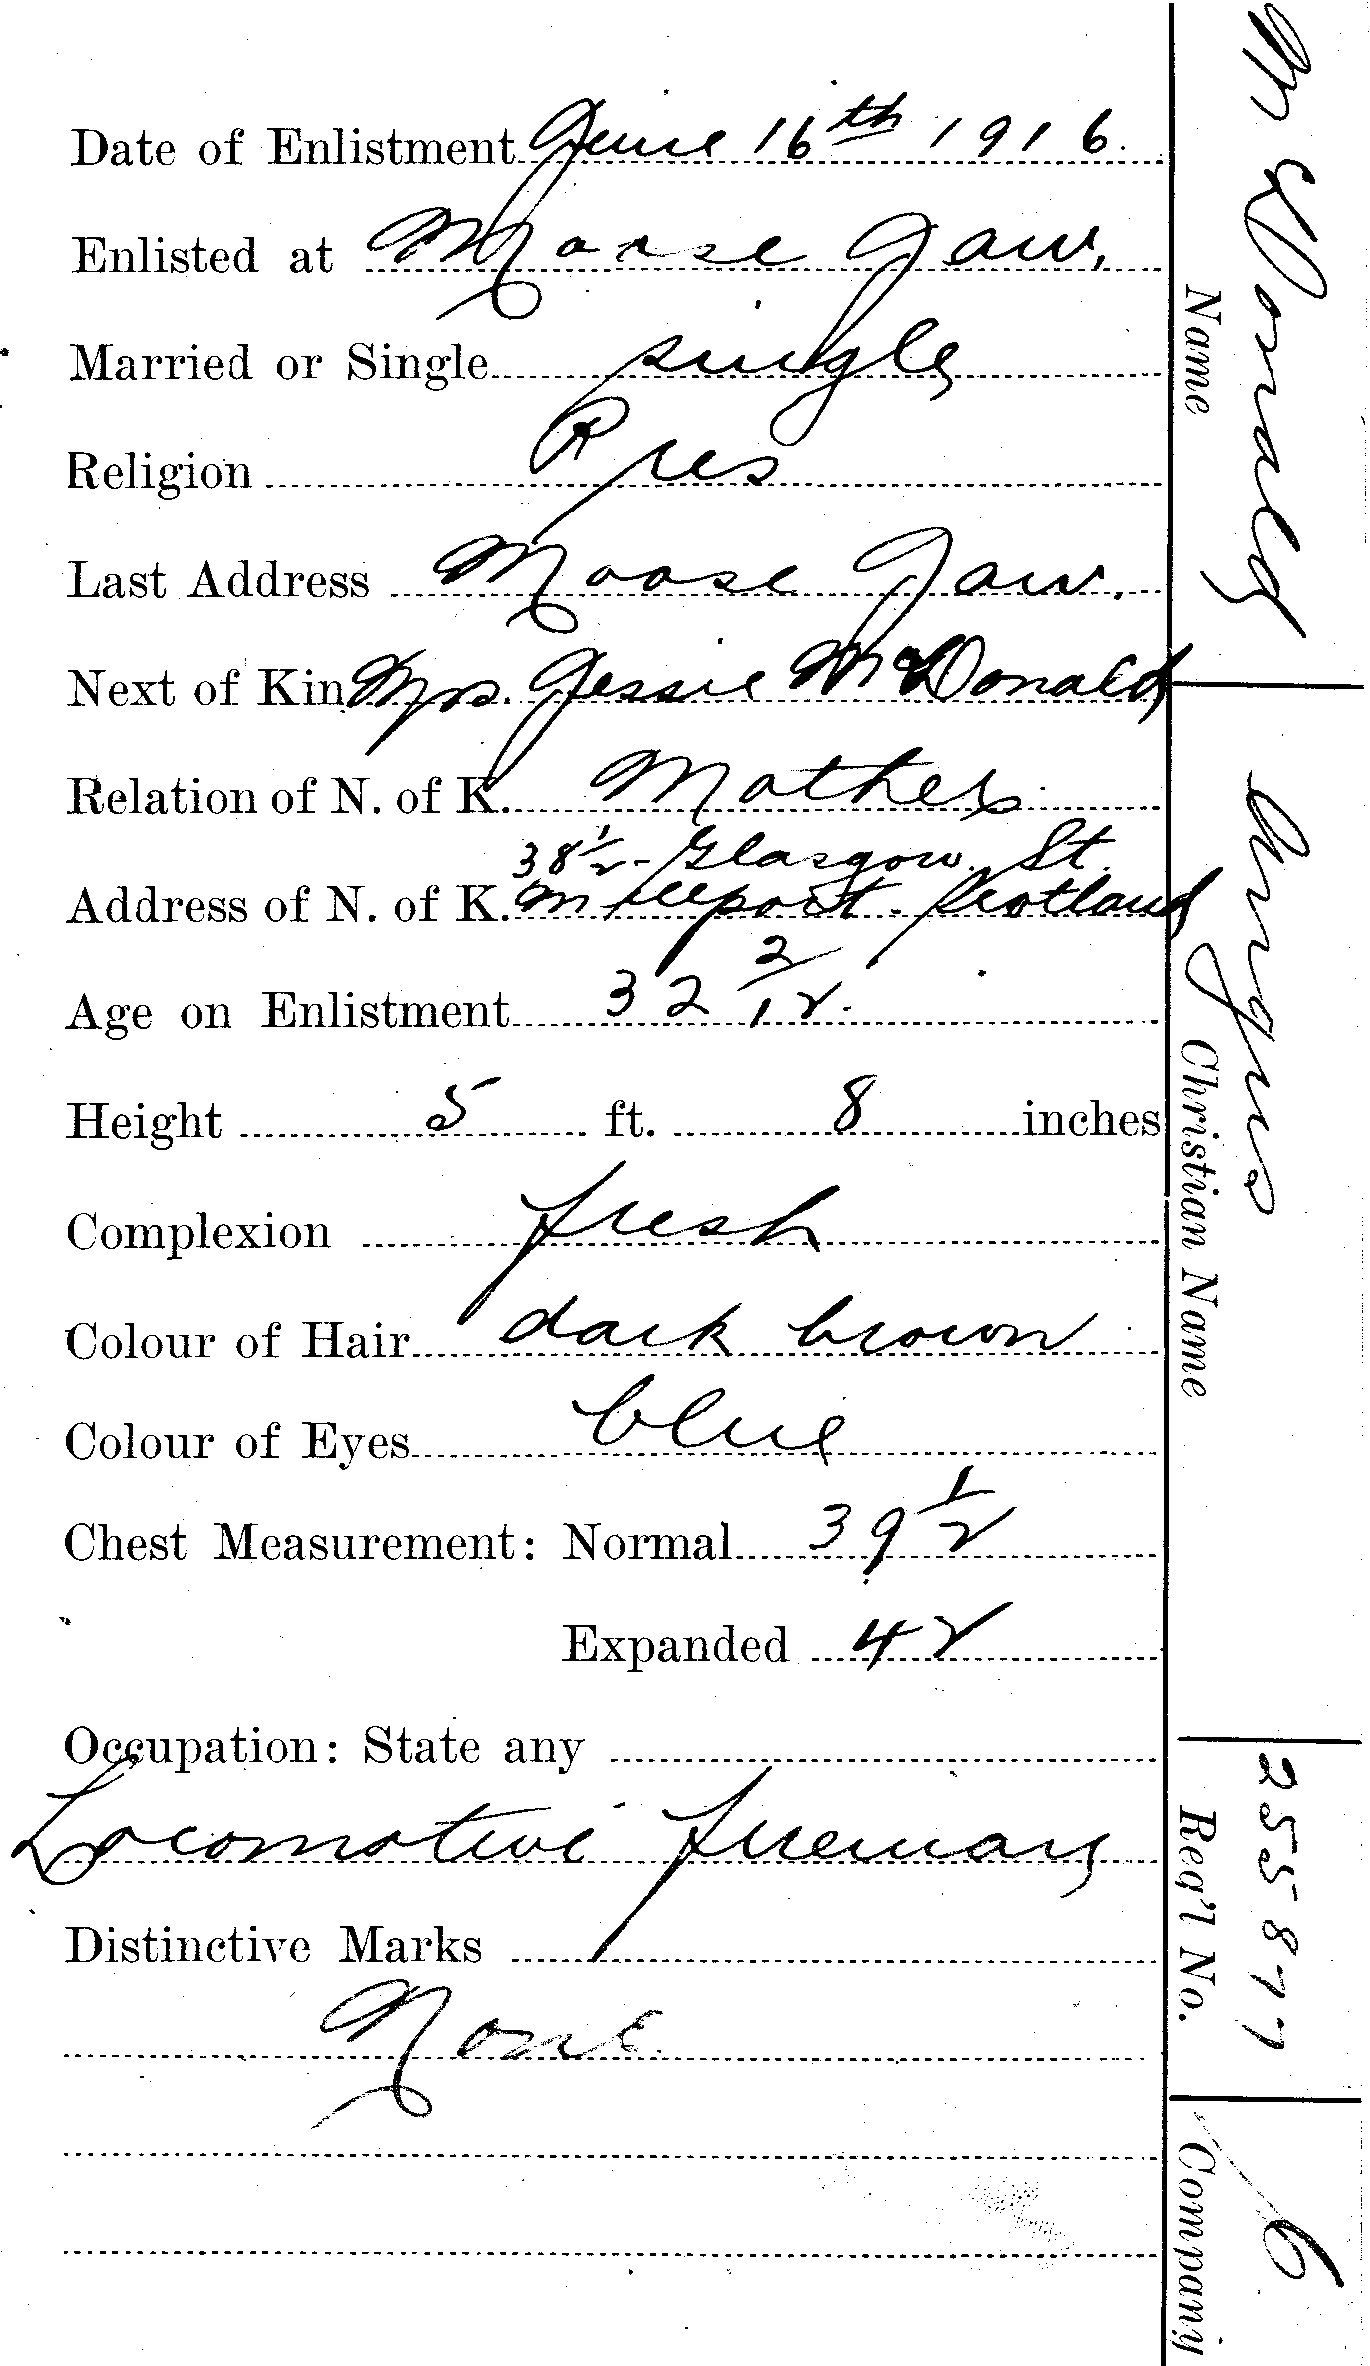 Date of Enlistment June 16th 1916.
Enlisted at Moose Jaw.
Married or Single single
Religion Pres
Last Address Moose Jaw.
Next of Kin Mrs. Jessie McDonald
Relation of N. of K. Mother
38 1/2 - Glasgow St.
Address of N. of K. Millport - Scotland
Age on Enlistment 32 2/12.
Height 5 ft. 8 inches
Complexion fresh
Colour of Hair dark brown
Colour of Eyes blue
Chest Measurement: Normal 39 1/2
Expanded 42
Occupation: State any
Locomotive fireman
Distinctive Marks
None
McDonald
Name
Angus
Christian Name
255877
Reg'l No.
Company